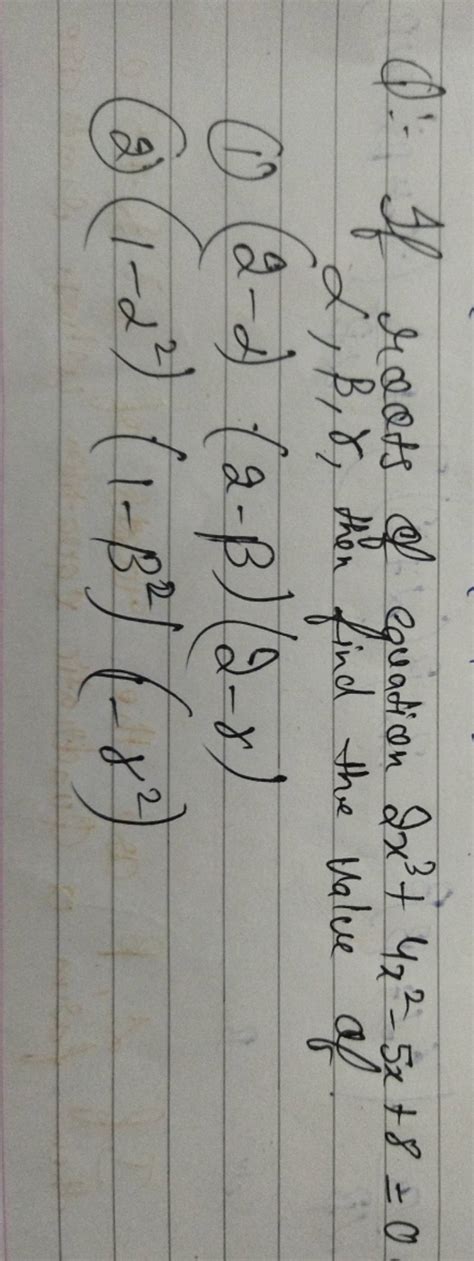 Q:- If roots of equation 2x³ + 4x² - 5x + 8 = 0
α, β, γ, then find the value of
① (2-α) (2-β) (2-γ)
② (1-α²) (1-β²) (-γ²)